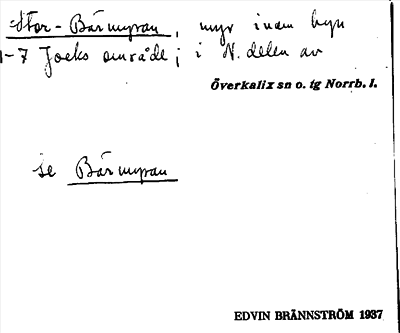 Stor-Bärmyran, myr inom byn
1-7 Jocks område; i N. delen av
Överkalix sn o. tg Norrb. l.
se Bärmyran
EDVIN BRÄNNSTRÖM 1937